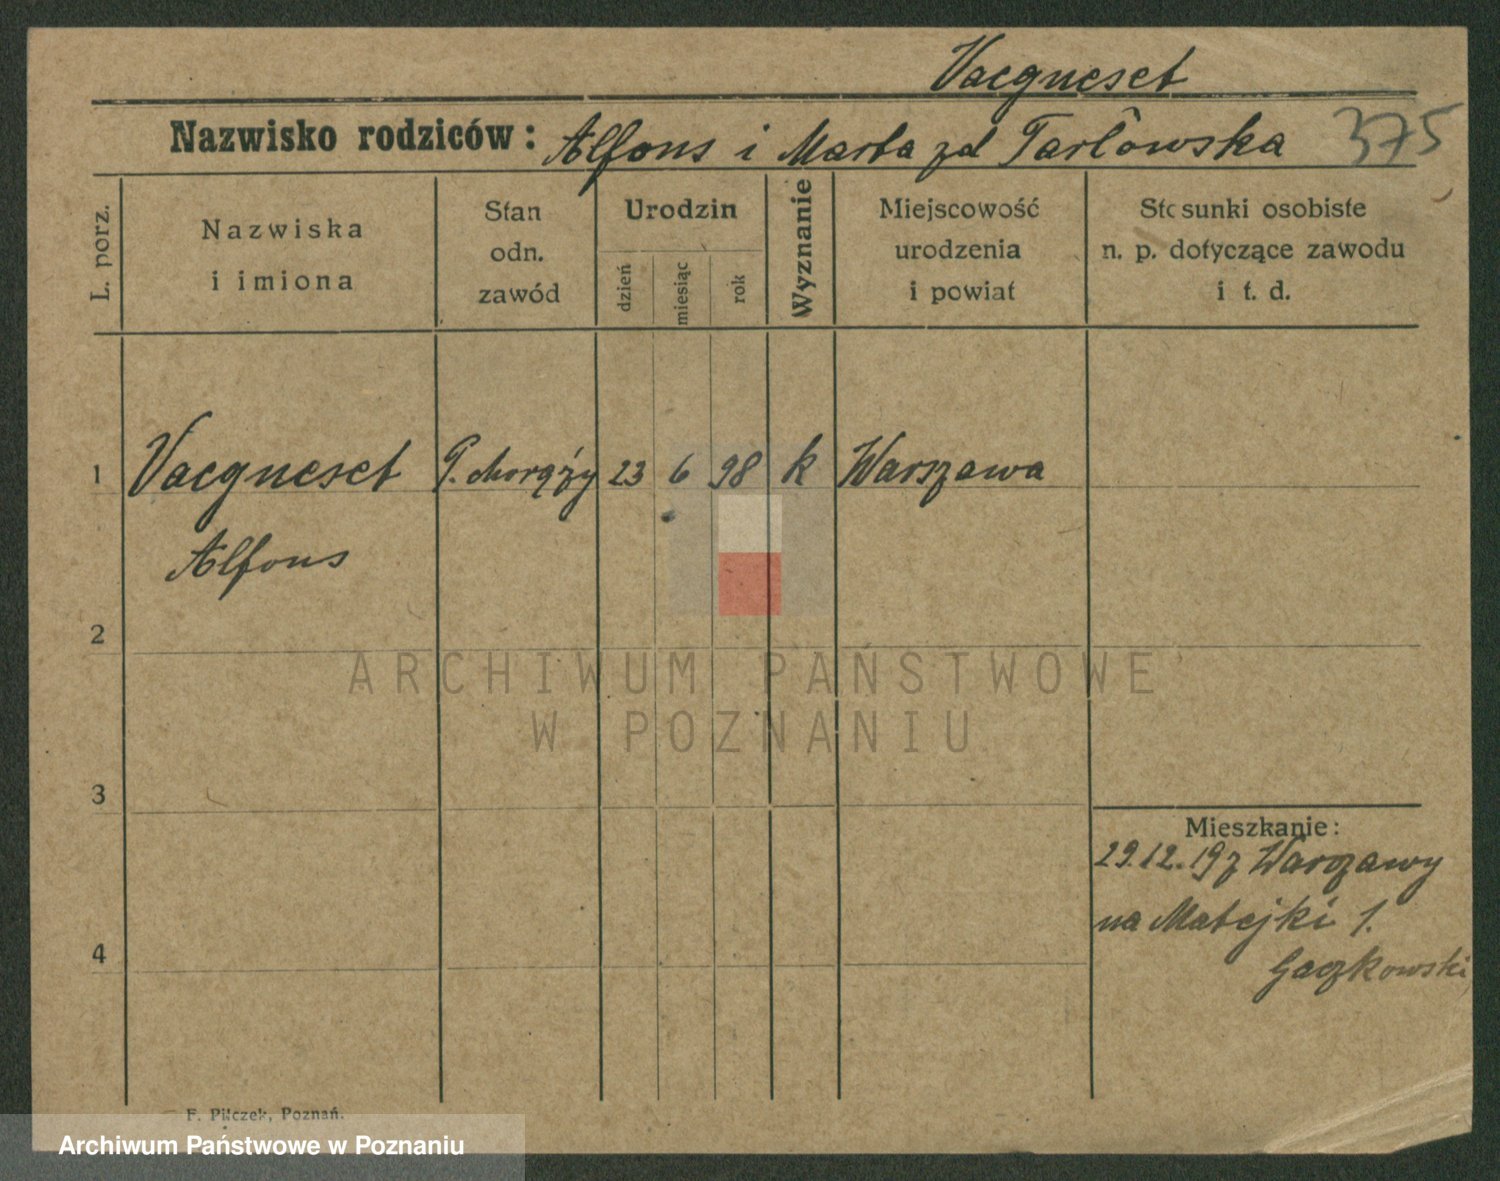 Vacqueset
Nazwisko rodziców: Alfons i Marta zd Tarłowska 375
L. porz.
Nazwiska
i imiona
Stan
odn.
zawód
Urodzin
dzień
miesiąc
rok
Wyznanie
Miejscowość
urodzenia
i powiat
Stosunki osobiste
n. p. dotyczące zawodu
i t. d.
1 Vacqueset P. chorąży 23 6 98 k Warszawa
Alfons
2
ARCHIWUM PAŃSTWOWE
W POZNANIU
3
Mieszkanie:
29.12.19 z Warszawy
na Matejki 1.
Gaczkowski
4
F. Pilczek, Poznań.
Archiwum Państwowe w Poznaniu